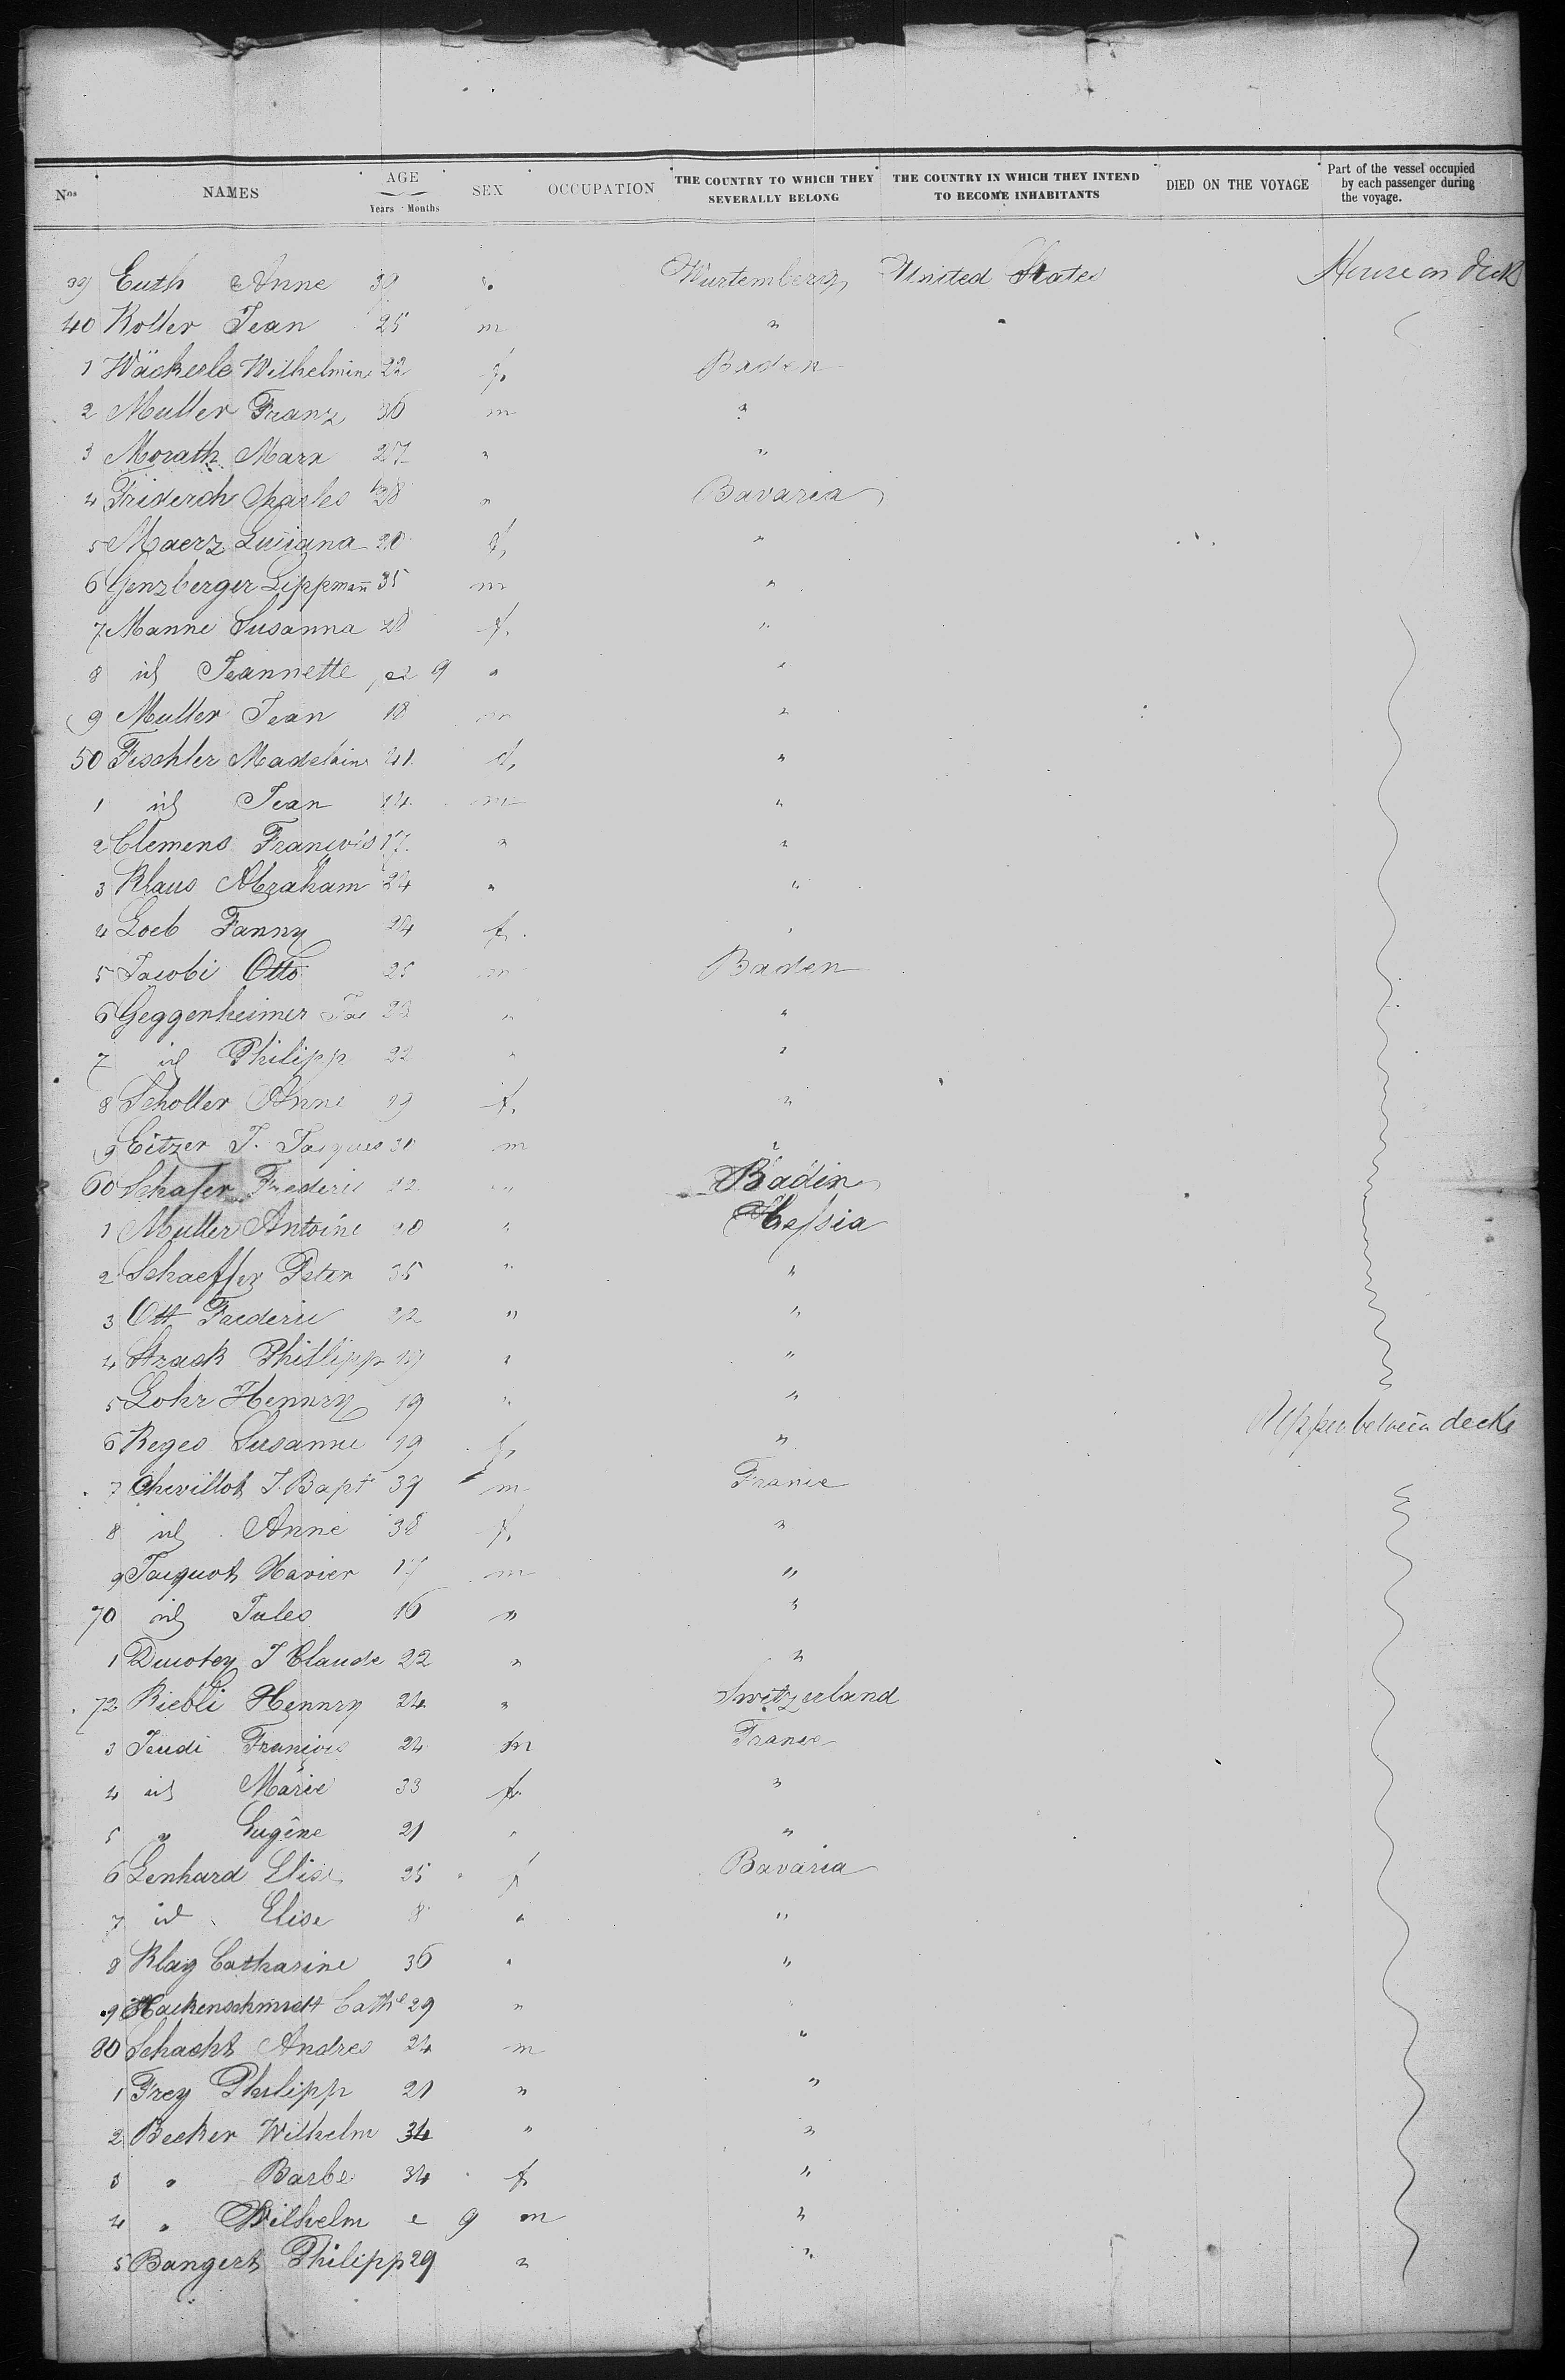 Nos NAMES AGE Years Months SEX OCCUPATION THE COUNTRY TO WHICH THEY SEVERALLY BELONG THE COUNTRY IN WHICH THEY INTEND TO BECOME INHABITANTS DIED ON THE VOYAGE Part of the vessel occupied by each passenger during the voyage.
39 Euth Anne 39 Wurtemberg United States House on deck
40 Koller Jean 25 m "
1 Wäckerle Wilhelmine 22 f. Baden
2 Muller Franz 36 m "
3 Morath Marx 27 " "
4 Friderch Charles 28 " Bavaria
5 Maerz Luisana 20 f. "
6 Genzberger Lippmañ 35 m "
7 Manne Susanna 28 f. "
8 id Jeannette 9 " "
9 Muller Jean 18 m "
50 Feschler Madelaine 41 f. "
1 id Jean 14 m "
2 Clemens François 17 " "
3 Klaus Abraham 24 " "
4 Loeb Fanny 24 f. "
5 Jacobi Otto 25 m Baden
6 Geggenheimer Jac 23 " "
7 id Philipp 22 " "
8 Scholler Anne 19 f. "
9 Eitzer J. Jacques 31 m "
60 Schafer Frederic 22 " Baden
1 Muller Antoine 20 " Hessia
2 Schaeffer Peter 35 " "
3 Ott Frederic 22 " "
4 Strack Phillipp 19 " "
5 Lohr Hennry 19 " "
6 Reges Susanne 19 f. " Upper between decks
7 Chevillot J. Bapt 39 m France
8 id Anne 38 f. "
9 Jacquot Xavier 17 m "
70 id Jules 16 " "
1 Ducotey J Claude 22 " "
72 Riebli Hennry 24 " Switzerland
3 Jeudi François 24 m France
4 id Marie 33 f. "
5 " Eugêne 21 " "
6 Lenhard Elise 25 f Bavaria
7 id Elise 8 " "
8 Klay Catharine 36 " "
9 Hackenschmidt Cathe 29 "
80 Schacht Andres 24 m "
1 Frey Philipp 21 " "
2 Becker Wilhelm 34 " "
3 " Barbe 34 f "
4 " Wilhelm 9 m "
5 Bangert Philipp 29 " "